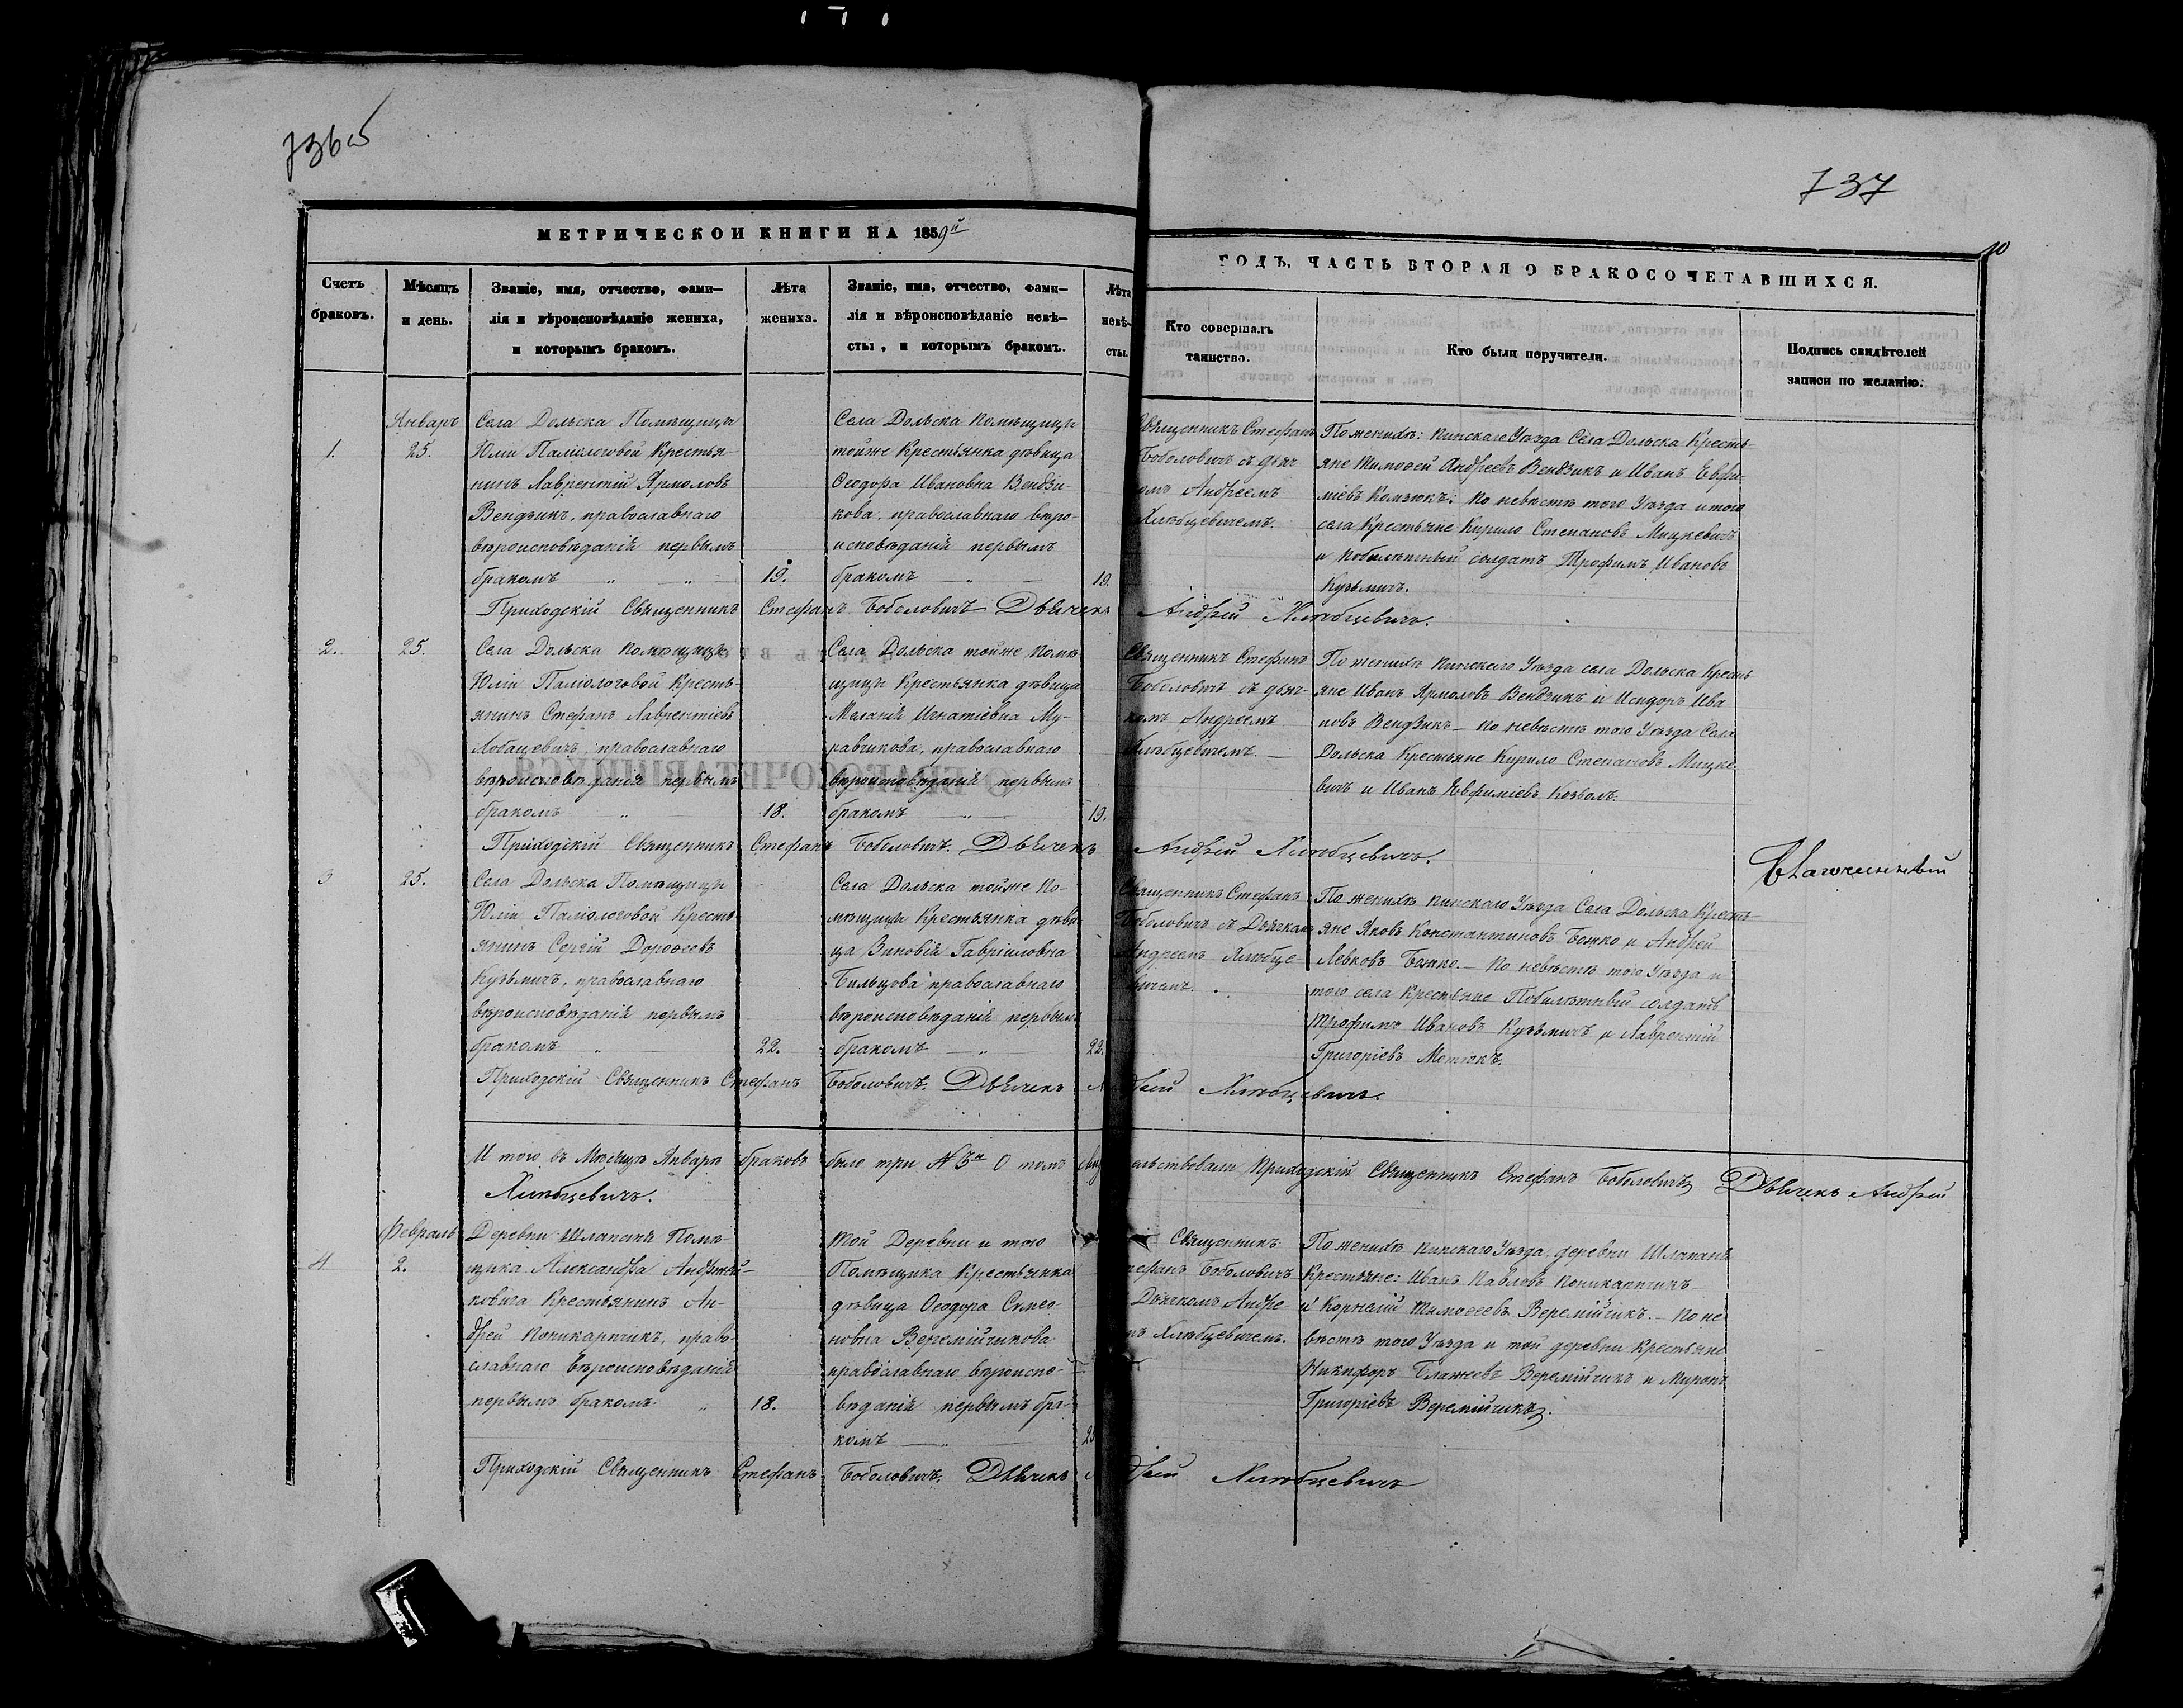 736об
737
10
МЕТРИЧЕСКОЙ КНИГИ НА 1859й
ГОДЪ, ЧАСТЬ ВТОРАЯ О БРАКОСОЧЕТАВШИХСЯ.
Счетъ
браковъ.
Мѣсяцъ
и день.
Званіе, имя, отчество, фами-
лія и вѣроисповѣданіе жениха,
и которымъ бракомъ.
Лѣта
жениха.
Званіе, имя, отчество, фами-
лія и вѣроисповѣданіе невѣ-
сты, и которымъ бракомъ.
Лѣта
невѣ-
сты.
Кто совершалъ
таинство.
Кто были поручители.
Подпись свидѣтелей
записи по желанію.
1.
Январь
25.
Села Дольска Помѣщицы
Юліи Паліологовой Крестья-
нинъ Лаврентій Ярмоловъ
Вендзикъ, православнаго
вѣроисповѣданія первымъ
бракомъ
19.
Села Дольска Помѣщицы
тойже Крестьянка дѣвица
Ѳеодора Ивановна Вендзи-
кова, православнаго вѣро-
исповѣданія первымъ
бракомъ
19.
Священникъ Стефанъ
Боболовичъ съ дьяч-
омъ Андреемъ
Хлѣбцевичемъ.
По женихѣ: Пинскаго Уѣзда Села Дольска Кресть-
яне Тимоѳей Андреевъ Вендзикъ и Иванъ Евфи-
міевъ Комзюкъ: По невѣстѣ того Уѣзда и того
села Крестьяне Кирило Степановъ Мицкевичъ
и побилѣтный солдатъ Трофимъ Ивановъ
Кузьмичъ.
Приходскій Священникъ Стефанъ Боболовичъ Дьячекъ Андрей Хлѣбцевичъ.
2.
25.
Села Дольска Помѣщицы
Юліи Паліологовой Кресть-
янинъ Стефанъ Лаврентіевъ
Лобацевичъ, православнаго
вѣроисповѣданія первымъ
бракомъ
18.
Села Дольска тойже Помѣ-
щицы Крестьянка дѣвица
Меланія Игнатіевна Му-
равчикова, православнаго
вѣроисповѣданія первымъ
бракомъ
19.
Священникъ Стефанъ
Боболовичъ съ дьяч-
комъ Андреемъ
Хлѣбцевичемъ
По женихѣ Пинскаго Уѣзда села Дольска Кресть-
яне Иванъ Ярмоловъ Вендзикъ и Исидоръ Ива
новъ Вендзикъ – По невѣстѣ того Уѣзда Села
Дольска Крестьяне Кирило Степановъ Мицке-
вичъ и Иванъ Евфиміевъ Козюлъ.
Приходскій Священникъ Стефанъ Боболовичъ. Дьячекъ Андрей Хлѣбцевичъ.
3
25.
Села Дольска Помѣщицы
Юліи Паліологовой Кресть-
янинъ Сергій Дороѳеевъ
Кузьмичъ, православнаго
вѣроисповѣданія первымъ
бракомъ
22.
Села Дольска тойже По-
мѣщицы Крестьянка дѣви-
ца Зиновія Гавріиловна
Бильцова православнаго
вѣроисповѣданія первымъ
бракомъ
22.
Священникъ Стефанъ
Боболовичъ съ Дьячкомъ
Андреемъ Хлѣбце
вичемъ.
По женихѣ Пинскаго Уѣзда Села Дольска Кресть-
яне Яковъ Константиновъ Божко и Андрей
Левковъ Божко. – По невѣстѣ того Уѣзда и
того села Крестьяне Побилѣтный солдатъ
Трофимъ Ивановъ Кузьмичъ и Лаврентій
Григоріевъ Метюкъ.
Приходскій Священникъ Стефанъ Боболовичъ. Дьячекъ Андрей Хлѣбцевичъ.
И того въ Мѣсяцѣ Январѣ браковъ было три № 3й О томъ свидѣтельствовали Приходскій Священникъ Стефанъ Боболовичъ Дьячекъ Андрей
Хлѣбцевичъ.
4
Февраль
2.
Деревни Шлапань Помѣ-
щика Александра Андржей-
ковича Крестьянинъ Ан-
дрей Поликарпчикъ, право-
славнаго вѣроисповѣданія
первымъ бракомъ
18.
Той Деревни и того
Помѣщика Крестьянка
дѣвица Ѳеодора Симео-
новна Веремійчикова
православнаго вѣроиспо-
вѣданія первымъ бра-
комъ
Священникъ
Стефанъ Боболовичъ
Дьячкомъ Андре
мъ Хлѣбцевичемъ.
По женихѣ Пинскаго Уѣзда деревни Шлапань
Крестьяне: Иванъ Павловъ Поликарпчикъ
и Корнелій Тимоѳеевъ Веремійчикъ. – По не
вѣстѣ того Уѣзда и той деревни Крестьяне
Никифоръ Блажеевъ Веремійчикъ и Миронъ
Григоріевъ Веремійчикъ.
Приходскій Священникъ Стефанъ Боболовичъ. Дьячекъ Андрей Хлѣбцевичъ